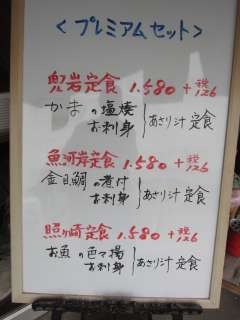 ＜プレミアムセット＞
兜岩定食 1.580 +税126
かまの塩焼
お刺身 } あさり汁 定食
魚河岸定食 1.580 +税126
金目鯛の煮付
お刺身 } あさり汁 定食
照ヶ崎定食 1.580 +税126
お魚の色々揚
お刺身 } あさり汁 定食